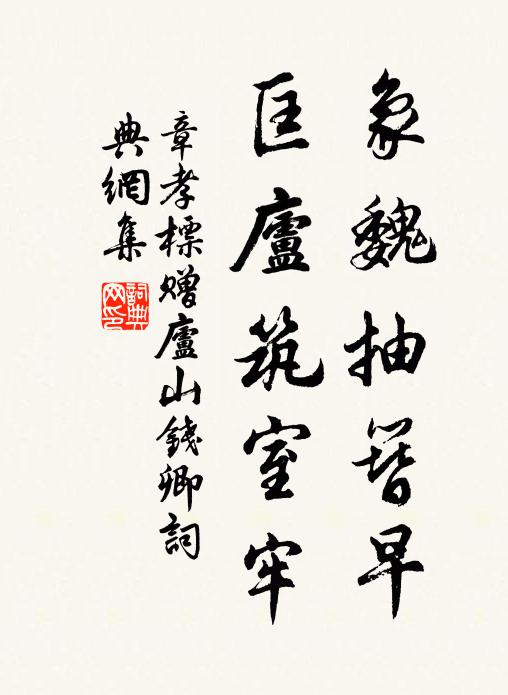 象魏抽簪早
匡廬筑室牢
章孝標赠廬山錢卿詞
典網集
詞典
网印